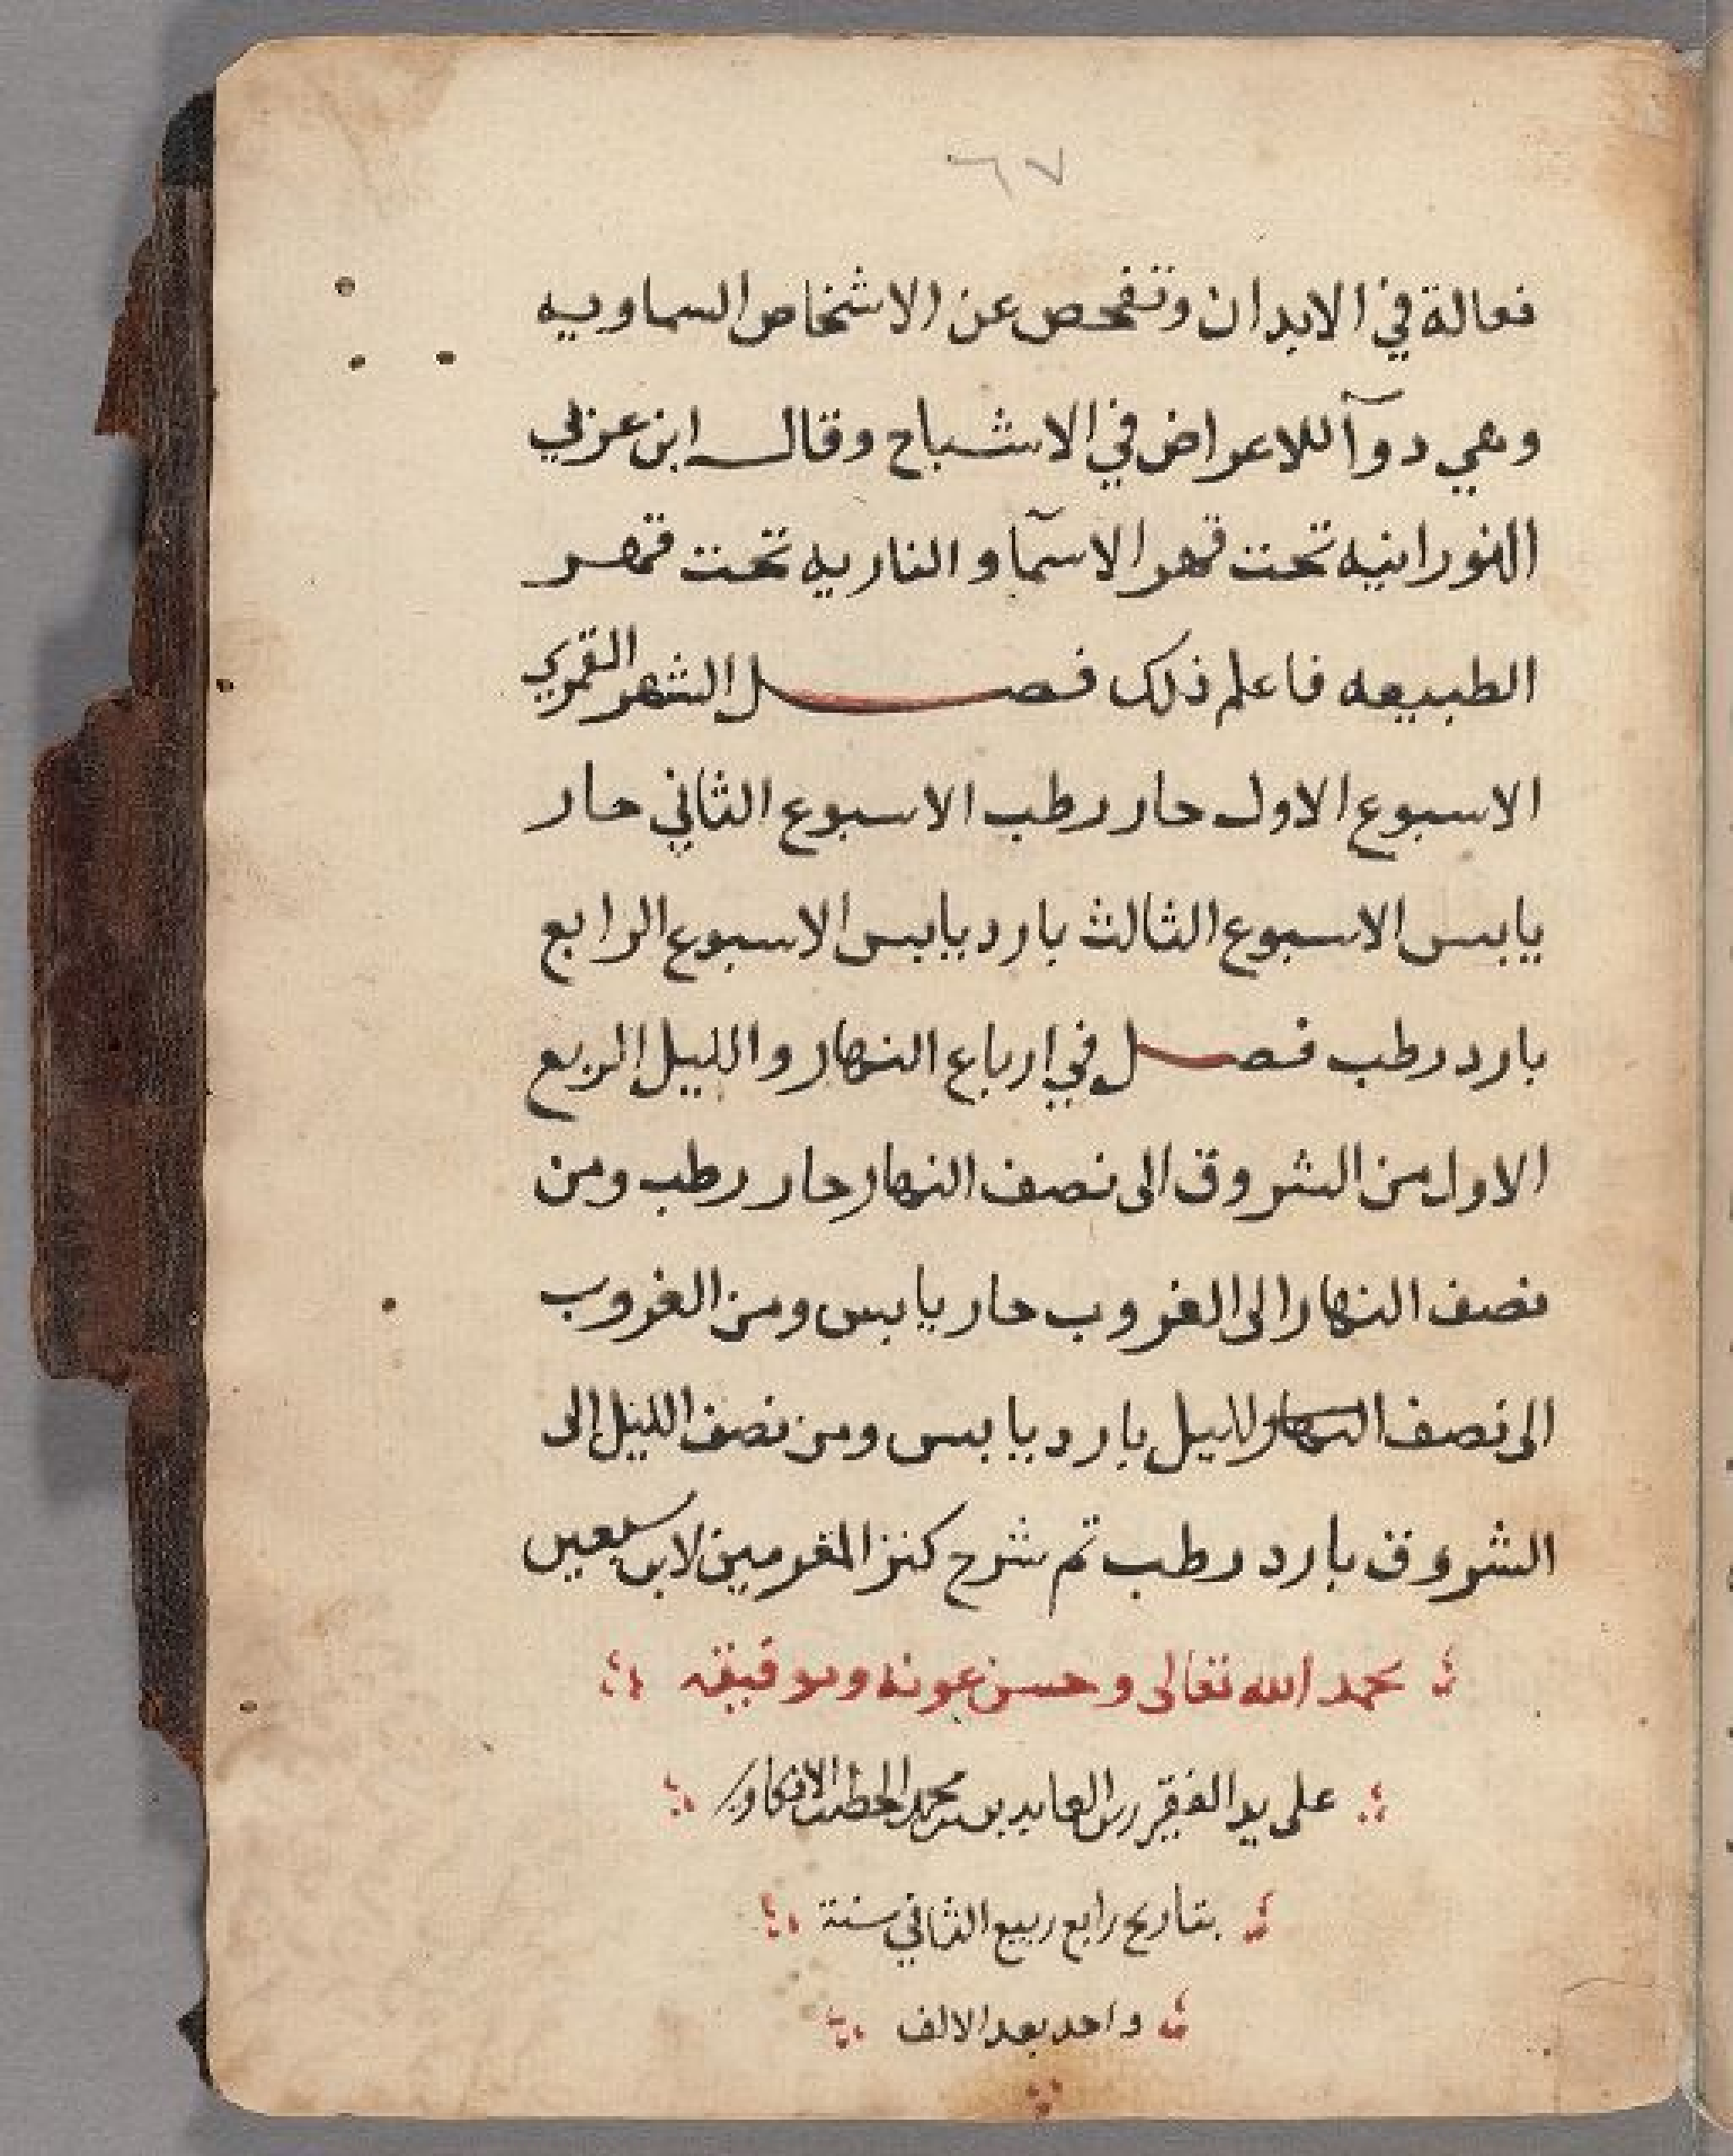 ٦٧
فعالة في الابدان وتفحص عن الاشخاص السماويه
وهي دوآ للاعراض في الاشباح وقال ابن عربي
النورانيه تحت قهر الاسمآ والناريه تحت قهر
الطبيعه فاعلم ذلك فصل الشهر القمري
الاسبوع الاول حار رطب الاسبوع الثاني حار
يابس الاسبوع الثالث بارد يابس الاسبوع الرابع
بارد رطب فصل في ارباع النهار والليل الربع
الاول من الشروق الى نصف النهار حار رطب ومن
نصف النهار الى الغروب حار يابس ومن الغروب
الى نصف النهار الليل بارد يابس ومن نصف الليل الى
الشروق بارد رطب تم شرح كنز المغرمين لابن سبعين
بحمد الله تعالى وحسن عونه وتوفيقه
على يد الفقير زين العابدين بن محمد الخطيب
بتاريخ رابع ربيع الثاني سنة
واحد بعد الالف